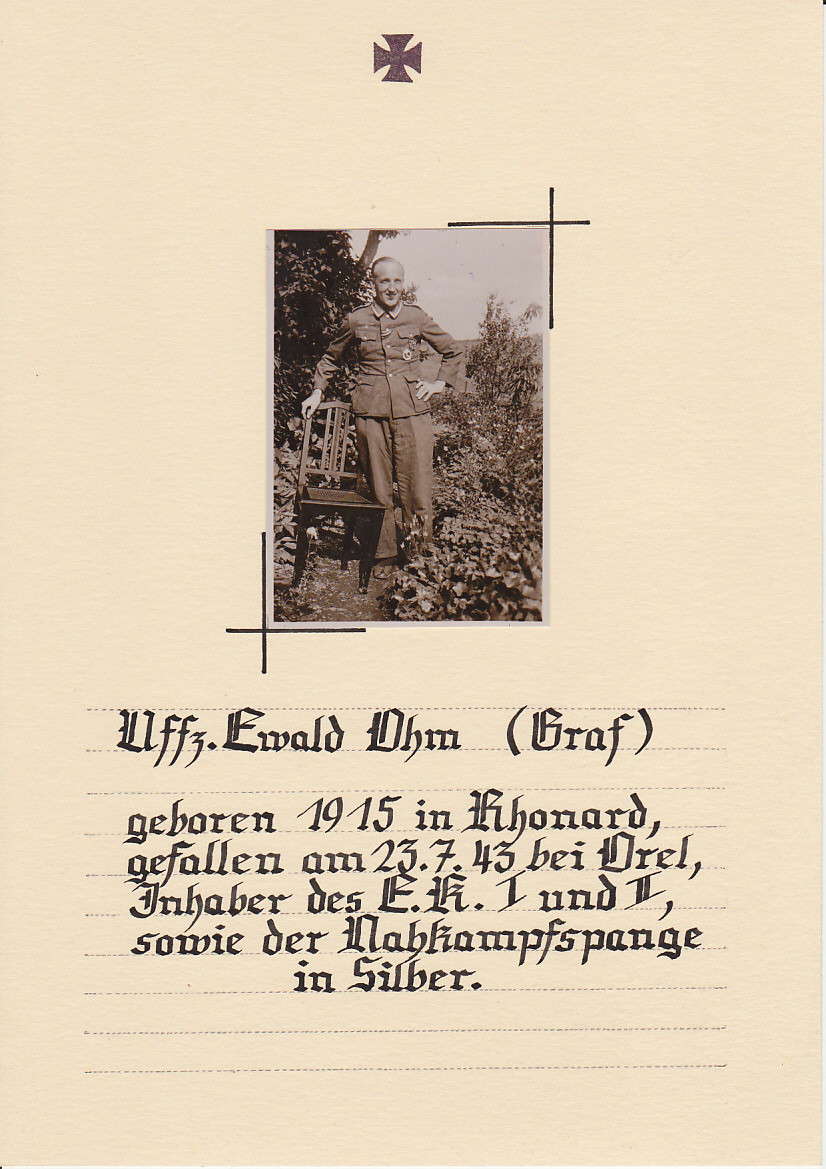 Uffz. Ewald Ohm (Graf)
geboren 1915 in Rhonard,
gefallen am 23.7.43 bei Orel,
Inhaber des E.K. I und II,
sowie der Nahkampfspange
in Silber.